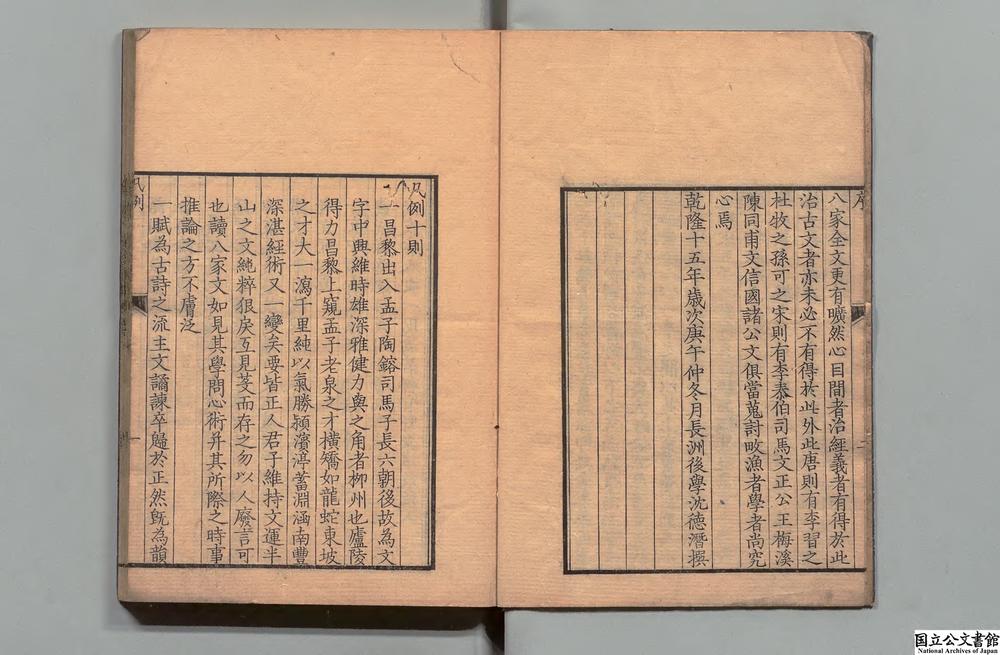 八家全文更有曠然心目間者治經義者有得於此
治古文者亦未必不有得於此外此唐則有李習之
杜牧之孫可之宋則有李泰伯司馬文正公王梅溪
陳同甫文信國諸公文俱當蒐討畋漁者學者尚究
心焉
乾隆十五年歲次庚午仲冬月長洲後學沈德潛撰
序
二
凡例十則
一昌黎出入孟子陶鎔司馬子長六朝後故為文
字中興維時雄深雅健力與之角者柳州也廬陵
得力昌黎上窺孟子老泉之才橫矯如龍蛇東坡
之才大一瀉千里純以氣勝潁濱渟蓄淵涵南豐
深湛經術又一變矣要皆正人君子維持文運半
山之文純粹狠戾互見芟而存之勿以人廢言可
也讀八家文如見其學問心術并其所際之時事
推論之方不膚泛
一賦為古詩之流主文譎諫卒歸於正然旣為韻
凡例
一
国立公文書館
National Archives of Japan